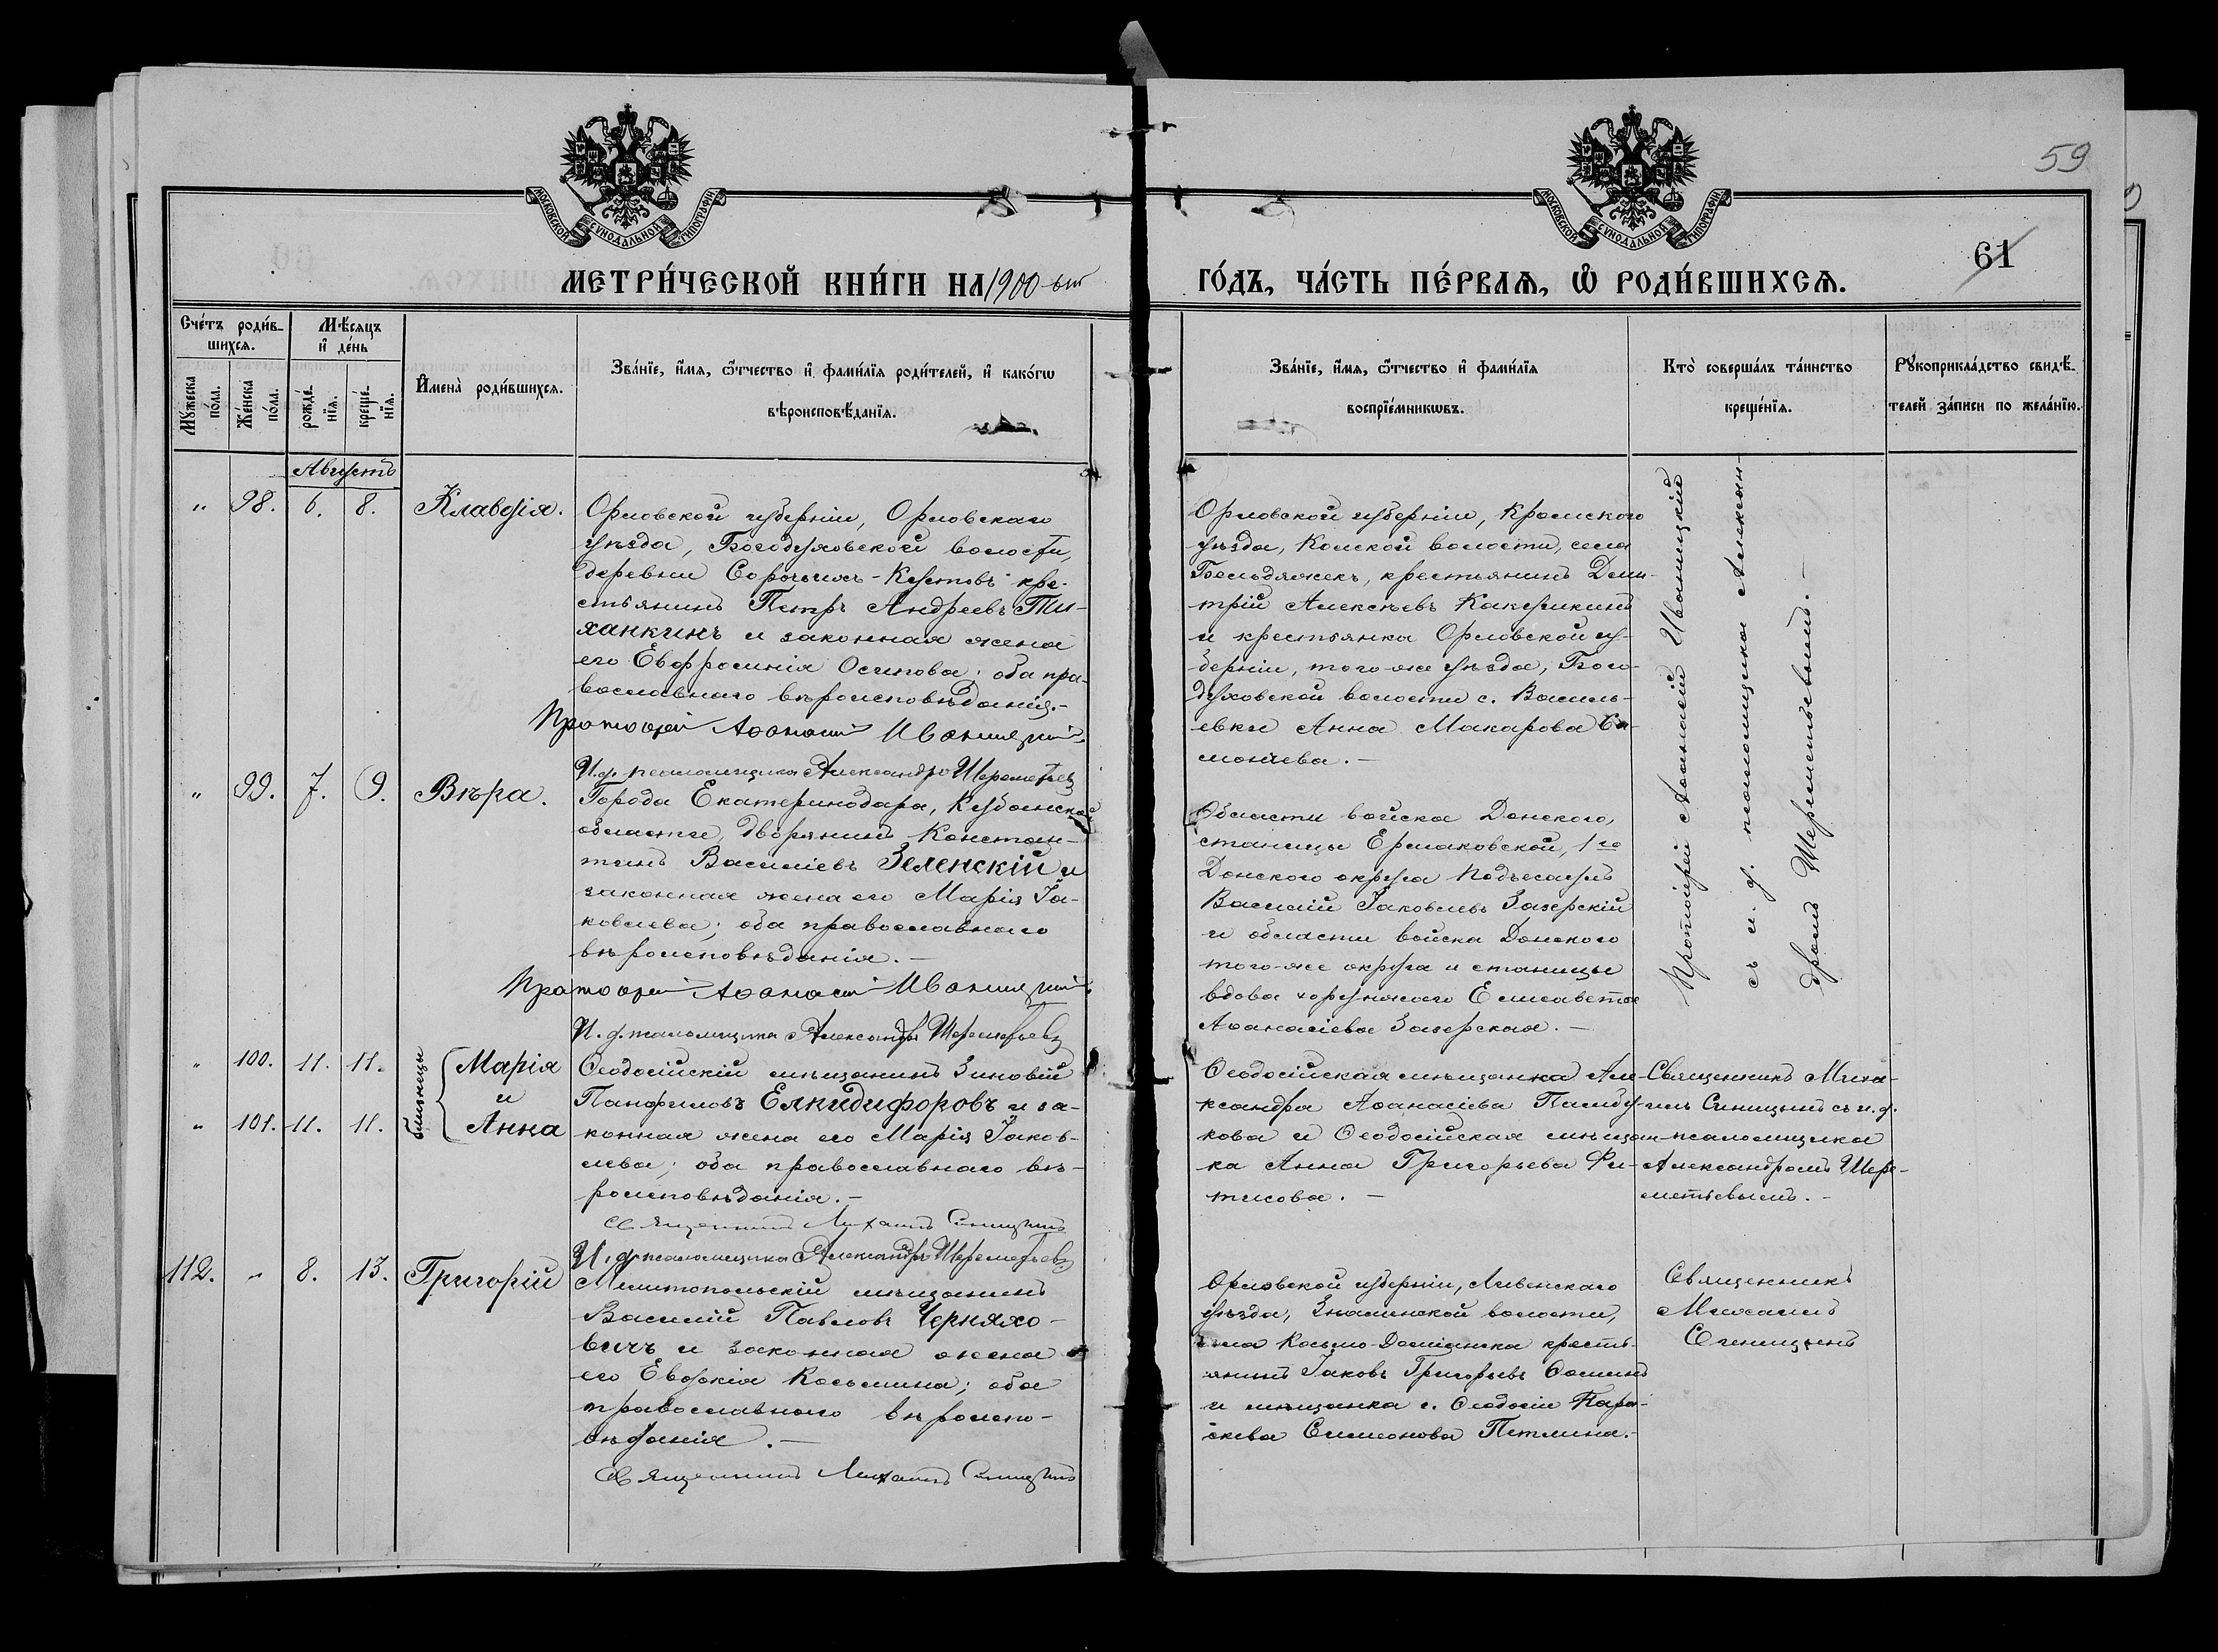 59
61
МОСКОВСКОЙ СѴНОДАЛЬНОЙ ТИПОГРАФІИ
МОСКОВСКОЙ СѴНОДАЛЬНОЙ ТИПОГРАФІИ
МЕТРИ́ЧЕСКОЙ КНИ́ГИ НА 1900-ый
ГО́ДЪ, ЧА́СТЬ ПЕ́РВАѦ, Ѡ҆ РОДИ́ВШИХСѦ.
Сче́тъ роди́в-
шихсѧ.
Мѣ́сѧцъ
и҆ де́нь
Мꙋ́жеска
по́ла.
Же́нска
по́ла.
рожде́-
нїѧ.
креще́-
нїѧ.
И҆мена̀ роди́вшихсѧ.
Зва́нїе, и҆́мѧ, ѻ҆́тчество и҆ фами́лїѧ роди́телей, и҆ како́гѡ
вѣроисповѣ́данїѧ.
Зва́нїе, и҆́мѧ, ѻ҆́тчество и҆ фами́лїѧ
воспрїе́мникѡвъ.
Кто̀ соверша́лъ та́инство
креще́нїѧ.
Рꙋкоприкла́дство свидѣ́-
телей за́писи по жела́нїю.
Августъ
" 98. 6. 8. Клавдія.
Орловской губерніи, Орловскаго
уѣзда, Богодуховской волости,
деревни Сорочьихъ-Кустовъ кре-
стьянинъ Петръ Андреевъ Ти-
ханкинъ и законная жена
его Евфросинія Осипова; оба пра-
вославнаго вѣроисповѣданія.-
Протоіерей Аѳанасій Иваницкій
И.д. псаломщика Александръ Шереметьевъ
Орловской губерніи, Кромского
уѣзда, волости, села
Бельдяжекъ, крестьянинъ Дими-
трій Алексѣевъ Какушкинъ
и крестьянка Орловской гу-
берніи, того-же уѣзда, Бого-
духовской волости с. Василь-
евки Анна Макарова
Протоіерей Аѳанасій Иваницкій
съ и. д. псаломщика Алексан-
дромъ Шереметьевымъ.-
" 99. 7. 9. Вѣра.
Города Екатеринодара, Кубанской
области, дворянинъ Констан-
тинъ Василіевъ Зеленскій и
законная жена его Марія Іа-
ковлева; оба православнаго
вѣроисповѣданія.-
Протоіерей Аѳанасій Иваницкій
И. д. псаломщика Александръ Шереметьевъ
Области войска Донского,
станицы Ермаковской, 1го
Донского округа подъесаулъ
Василій Іаковлевъ Захерскій
и области войска Донского
того-же округа и станицы
вдова хорунжаго Елисавета
Аѳанасіева Захерская.-
" 100. 11. 11. Марія
близнецы и
" 101. 11. 11. Анна
Ѳеодосійскій мѣщанинъ Зиновій
Панфиловъ Елкидифоровъ и за-
конная жена его Марія Іаков-
лева; оба православнаго вѣ-
роисповѣданія.-
Священникъ Михаилъ Синицынъ
И. д. псаломщика Александръ Шереметьевъ
Ѳеодосійская мѣщанка Але-
ксандра Аѳанасіева Памбу-
кова и Ѳеодосійская мѣщан-
ка Анна Григорьева Фи-
тисова.-
Священникъ Миха-
илъ Синицынъ съ и. д.
псаломщика
Александромъ Шере-
метьевымъ.-
112. " 8. 13. Григорій
Мелитопольскій мѣщанинъ
Василій Павловъ Черняхо-
вичъ и законная жена
его Евдокія Косьмина; оба
православнаго вѣроиспо-
вѣданія.-
Священникъ Михаилъ Синицынъ
Орловской губерніи, Ливенскаго
уѣзда, Знаменской волости,
села Косьмо-Даміанска кресть-
янинъ Іаковъ Григорьевъ Ѳоминъ
и мѣщанка г. Ѳеодосіи Пара-
скева Симеонова Петлина.-
Священникъ
Михаилъ
Синицынъ